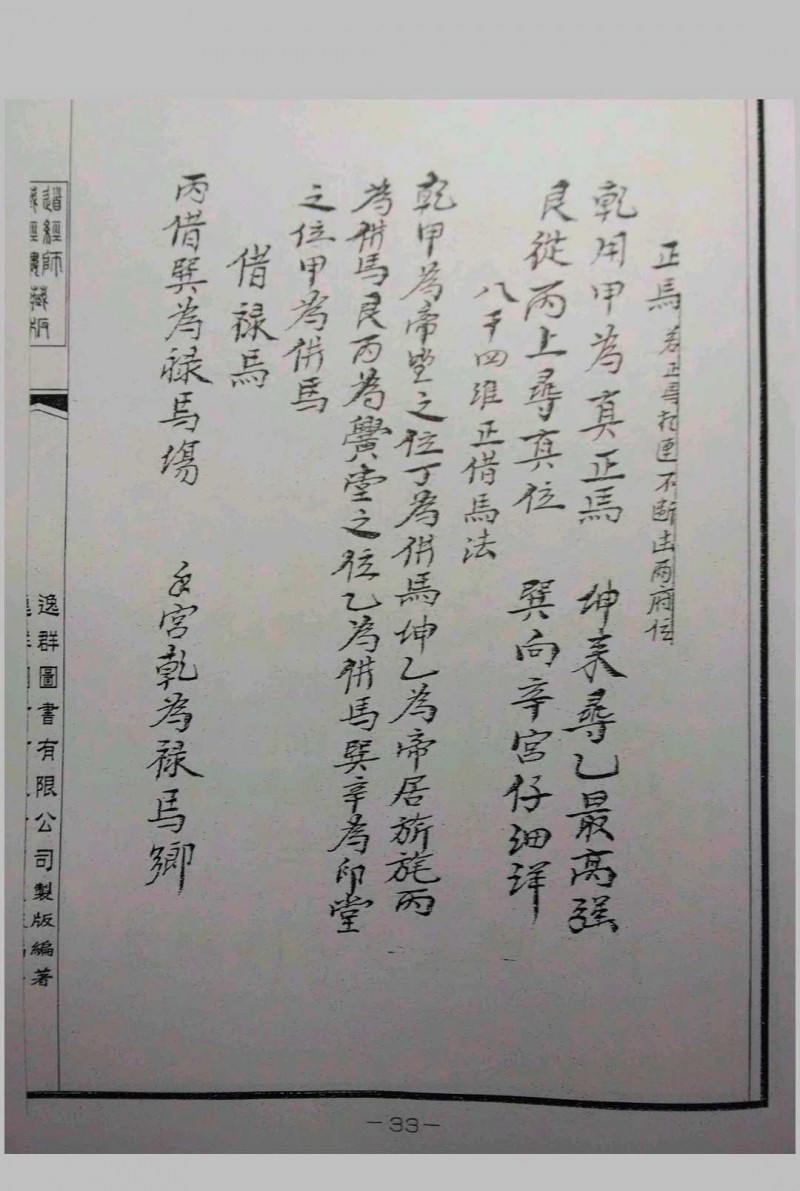 正馬 若正尋 不斷出兩府位
乾用甲為真正馬 坤來尋乙最高强
艮從丙上尋真位 巽向辛宮仔細詳
八干四維正借馬法
乾甲為帝輦之位丁為併馬坤乙為帝居旂旄丙
為併馬艮丙為黌堂之位乙為併馬巽辛為印堂
之位甲為併馬
借祿馬
丙借巽為祿馬場 宮乾為祿馬鄉
道經師
藏版
逸群圖書有限公司製版編著
-33-